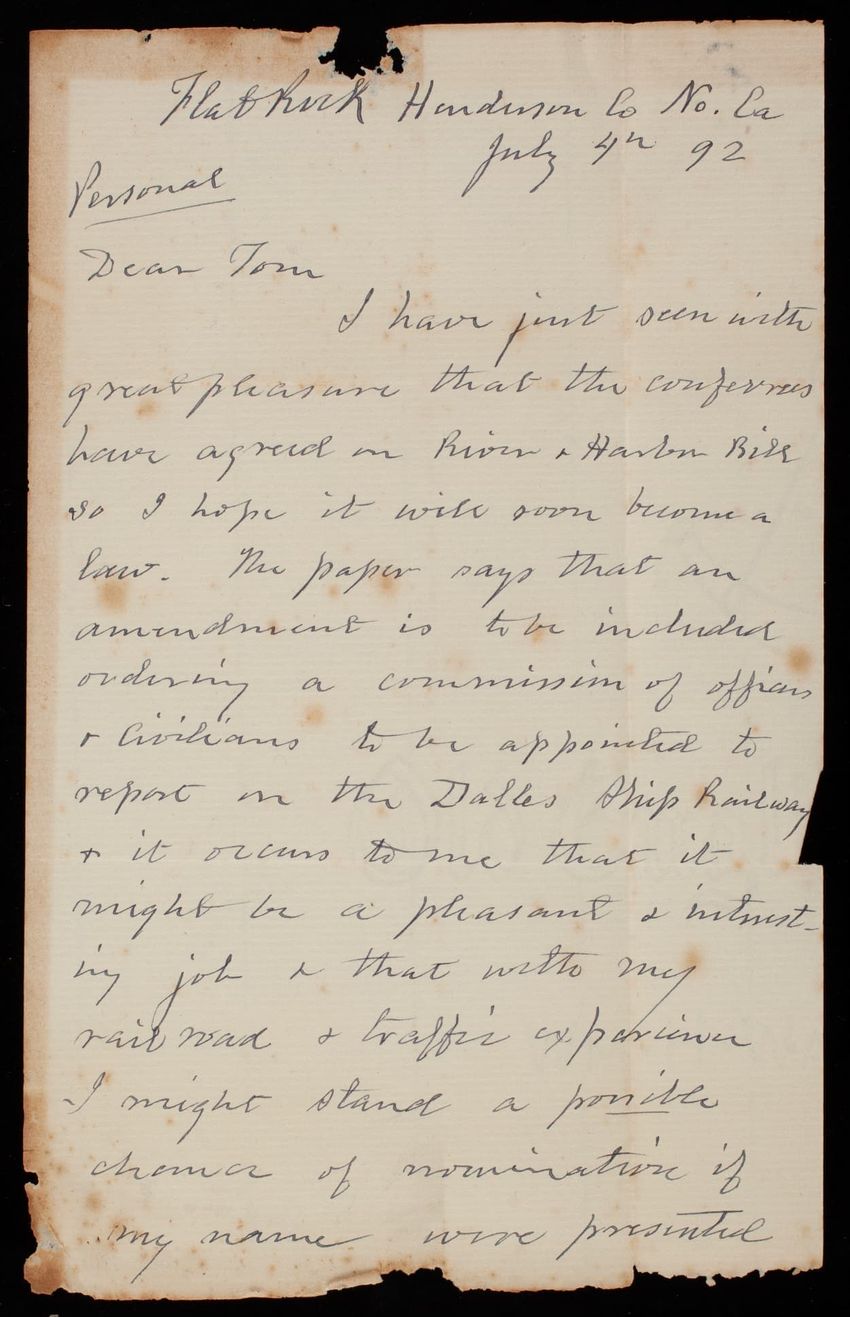 Flat Rock Henderson Co No. Ca
July 4th 92
Personal
Dear Tom
I have just seen with
great pleasure that the conferrees
have agreed on River & Harbor Bill
so I hope it will soon become a
law. The paper says that an
amendment is to be included
ordering a commission of officers
& Civilians to be appointed to
report on the Dalles Ship Railway
& it occurs to me that it
might be a pleasant & interest-
ing job & that with my
railroad & traffic experience
I might stand a possible
chance of nomination if
my name were presented